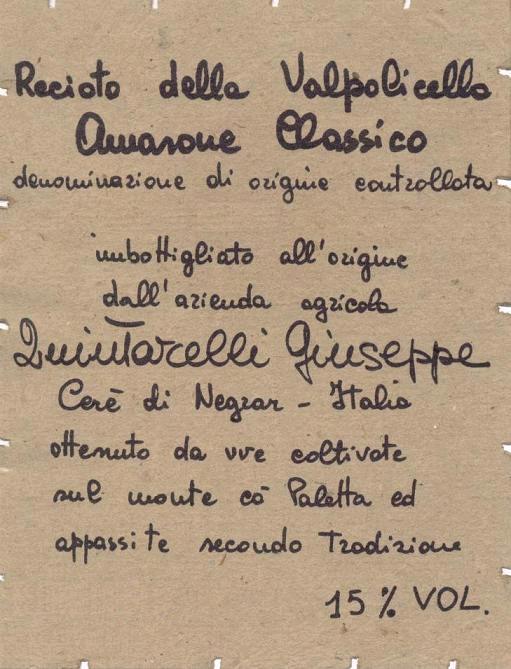 Recioto della Valpolicella
Amarone Classico
denominazione di origine controllata
imbottigliato all'origine
dall'azienda agricola
Quintarelli Giuseppe
Cerè di Negrar - Italia
ottenuto da uve coltivate
sul monte cà Paletta ed
appassite secondo Tradizione
15% VOL.